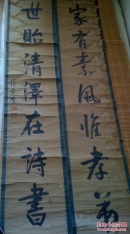 家有素風惟孝
世貽清澤在詩書